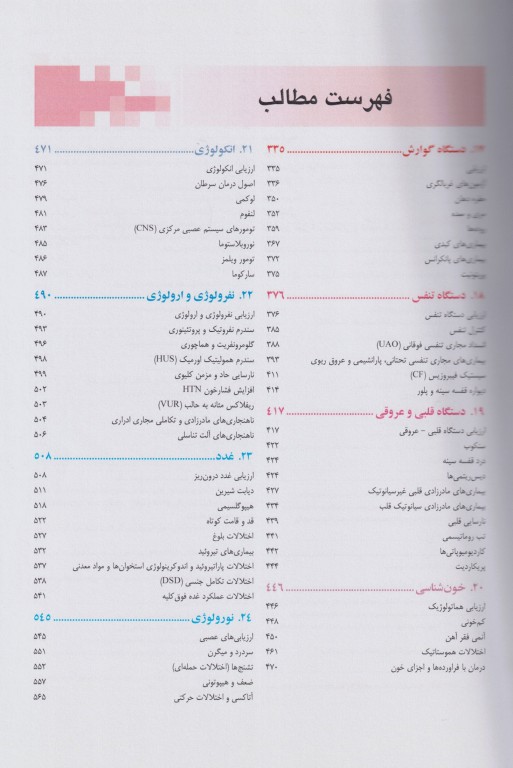 فهرست مطالب
دستگاه گوارش ........ ۳۳۵
ارزیابی ۳۳۵
آزمون‌های غربالگری ۳۳۶
حفره دهان ۳۵۰
مری و معده ۳۵۲
روده‌ها ۳۵۹
بیماری‌های کبدی ۳۶۷
بیماری‌های پانکراس ۳۷۲
پریتونیت ۳۷۵
۱۸. دستگاه تنفس ........ ۳۷۶
ارزیابی دستگاه تنفس ۳۷۶
کنترل تنفس ۳۸۵
انسداد مجاری تنفسی فوقانی (UAO) ۳۸۸
بیماری‌های مجاری تنفسی تحتانی، پارانشیمی و عروق ریوی ۳۹۳
سیستیک فیبروزیس (CF) ۴۱۱
دیواره قفسه سینه و پلور ۴۱۴
۱۹. دستگاه قلبی و عروقی ........ ۴۱۷
ارزیابی دستگاه قلبی - عروقی ۴۱۷
سنکوپ ۴۲۲
درد قفسه سینه ۴۲۴
دیس‌ریتمی‌ها ۴۲۴
بیماری‌های مادرزادی قلبی غیرسیانوتیک ۴۲۷
بیماری‌های مادرزادی سیانوتیک قلب ۴۳۴
نارسایی قلبی ۴۳۹
تب روماتیسمی ۴۴۱
کاردیومیوپاتی‌ها ۴۴۲
پریکاردیت ۴۴۴
۲۰. خون‌شناسی ........ ۴۴۶
ارزیابی هماتولوژیک ۴۴۶
کم‌خونی ۴۴۸
آنمی فقر آهن ۴۵۰
اختلالات هموستاتیک ۴۶۱
درمان با فراورده‌ها و اجزای خون ۴۷۰
۲۱. انکولوژی ........ ۴۷۱
ارزیابی انکولوژی ۴۷۱
اصول درمان سرطان ۴۷۶
لوکمی ۴۷۹
لنفوم ۴۸۱
تومورهای سیستم عصبی مرکزی (CNS) ۴۸۳
نوروبلاستوما ۴۸۵
تومور ویلمز ۴۸۶
سارکوما ۴۸۷
۲۲. نفرولوژی و ارولوژی ........ ۴۹۰
ارزیابی نفرولوژی و ارولوژی ۴۹۰
سندرم نفروتیک و پروتئینوری ۴۹۳
گلومرونفریت و هماچوری ۴۹۶
سندرم همولیتیک اورمیک (HUS) ۴۹۸
نارسایی حاد و مزمن کلیوی ۴۹۹
افزایش فشارخون HTN ۵۰۲
ریفلاکس مثانه به حالب (VUR) ۵۰۳
ناهنجاری‌های مادرزادی و تکاملی مجاری ادراری ۵۰۴
ناهنجاری‌های آلت تناسلی ۵۰۶
۲۳. غدد ........ ۵۰۸
ارزیابی غدد درون‌ریز ۵۰۸
دیابت شیرین ۵۱۱
هیپوگلسیمی ۵۱۸
قد و قامت کوتاه ۵۲۲
اختلالات بلوغ ۵۲۷
بیماری‌های تیروئید ۵۳۲
اختلالات پاراتیروئید و اندوکرینولوژی استخوان‌ها و مواد معدنی ۵۳۷
اختلالات تکامل جنسی (DSD) ۵۳۸
اختلالات عملکرد غده فوق‌کلیه ۵۴۱
۲۴. نورولوژی ........ ۵۴۵
ارزیابی‌های عصبی ۵۴۵
سردرد و میگرن ۵۵۱
تشنج‌ها (اختلالات حمله‌ای) ۵۵۲
ضعف و هیپوتونی ۵۵۷
آتاکسی و اختلالات حرکتی ۵۶۵